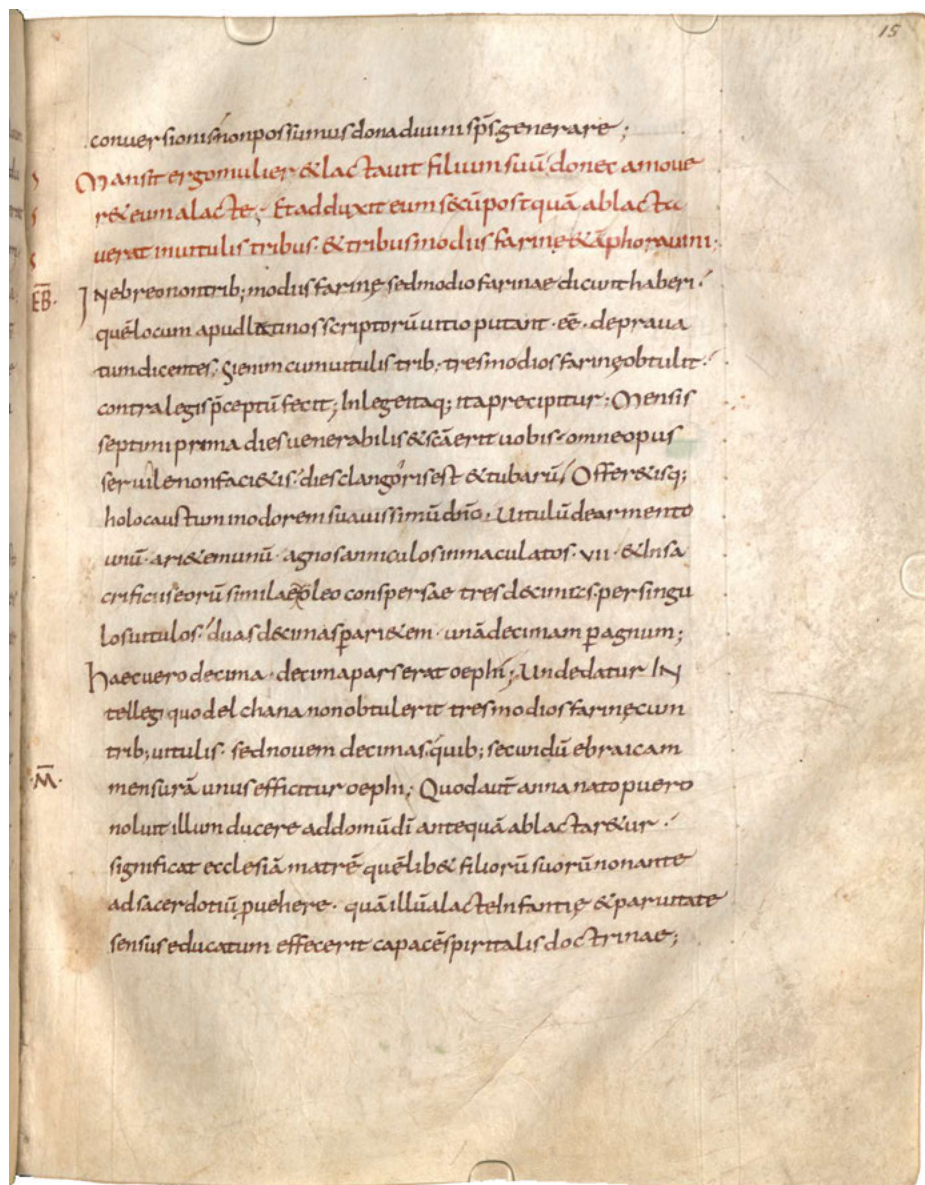 15
conversionis non possumus dona divini sp̄s generare;
Mansit ergo mulier & lactavit filium suū donec amove
r& eum a lacte; Et adduxit eum secū postquā ablacta
verat in vitulis tribus · & tribus modiis farinę & āphora vini·
EB̄· IN ebreo non trib; modiis farinę sed modio farinae dicunt haberi·
quē locum apud latinos scriptorū vitio putant · eē · deprava
tum dicentes; Si enim cum vitulis trib; tres modios farinę obtulit·
contra legis p̄ceptū fecit; In lege itaq; ita precipitur; Mensis
septimi prima dies venerabilis & sc̄a erit vobis · omne opus
servile non faci&is · dies clangoris est & tubarū; Offer&isq;
holocaustum in odorem suavissimū dn̄o · Vitulū de armento
unū · ari&em unū · agnos anniculos inmaculatos · VII · & In sa
crificiis eorū similae oleo conspersae tres decimas · per singu
los vitulos · duas decimas p̱ ari&em · unā decimam p̱ agnum;
haec vero decima · decima pars erat oephi; Unde datur IN
tellegi quod elchana non obtulerit tres modios farinę cum
trib; vitulis · sed novem decimas · quib; secundū ebraicam
M̄· mensurā unus efficitur oephi; Quod aut̄ anna nato puero
noluit illum ducere ad domū dī antequā ablactar&ur ·
significat ecclesiā matrē quēlib& filiorū suorū non ante
ad sacerdotiū p̱vehere · quā illū a lacte Infantię & parvitate
sensus educatum effecerit capacē spiritalis doctrinae;